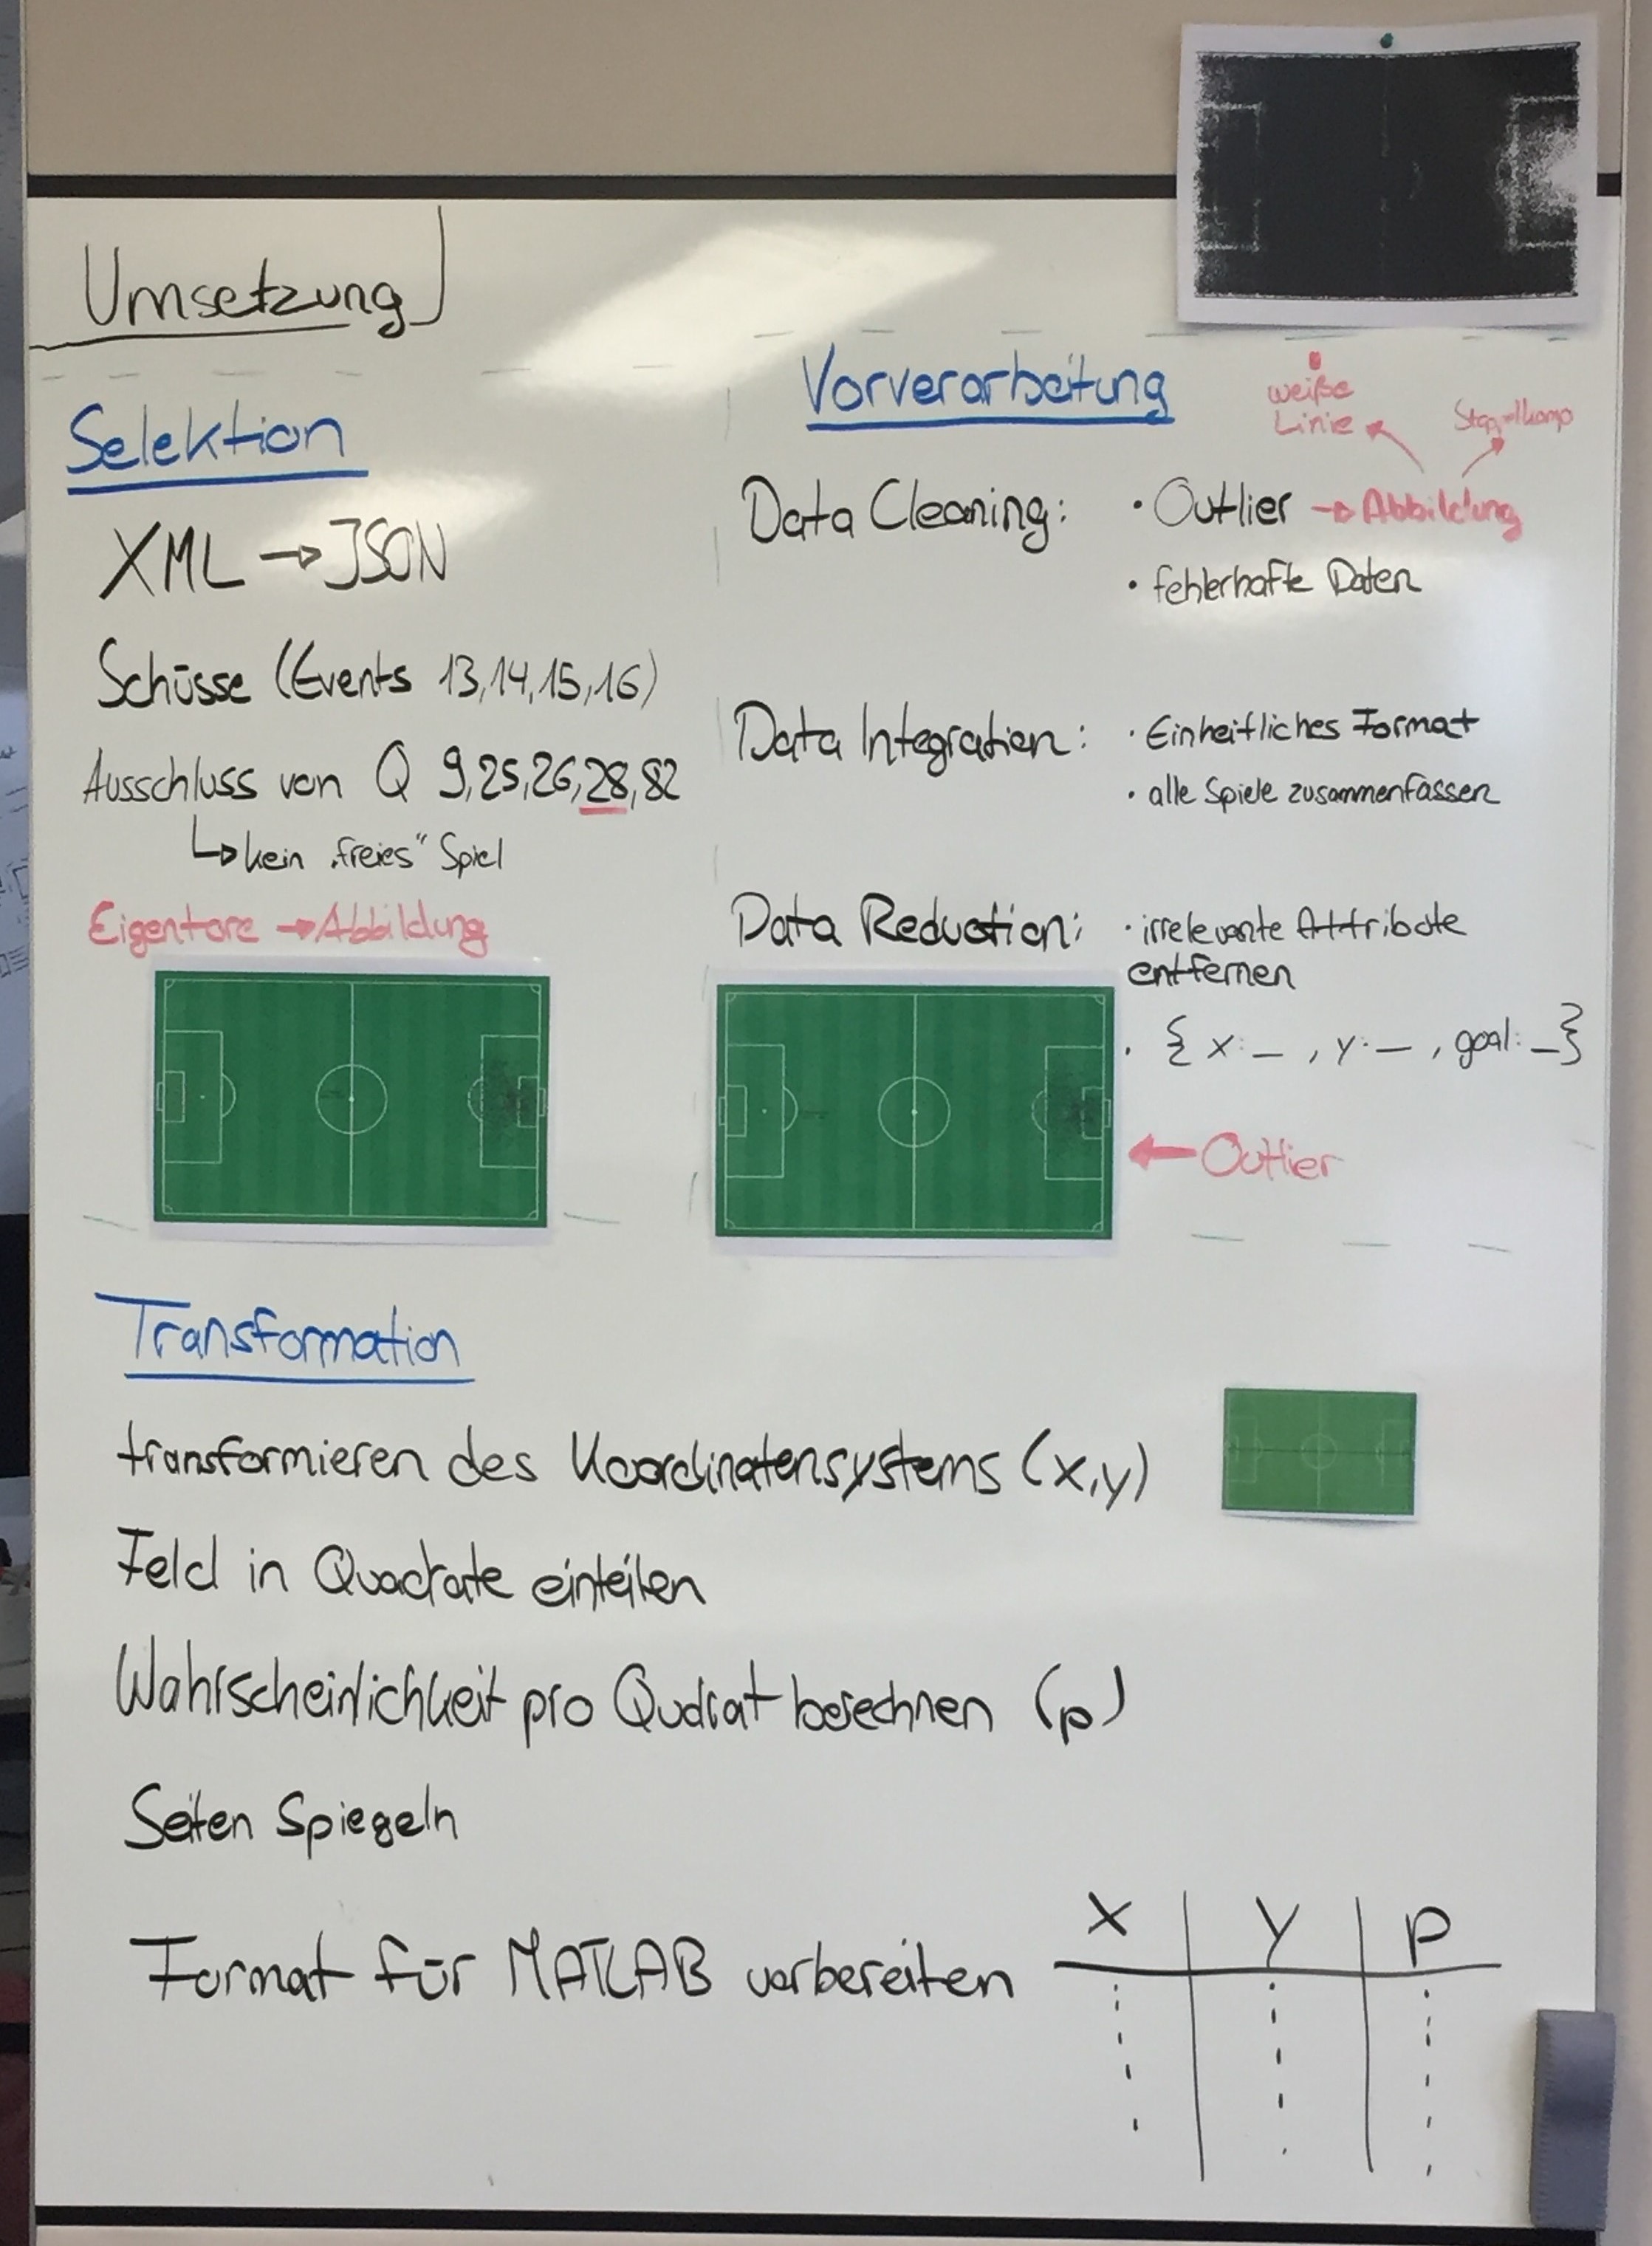 Umsetzung
Selektion
XML → JSON
Schüsse (Events 13,14,15,16)
Ausschluss von Q 9,25,26,28,82
↳ kein „freies“ Spiel
Eigentore → Abbildung
Vorverarbeitung
weiße
Linie
Data Cleaning: • Outlier → Abbildung
• fehlerhafte Daten
Data Integration: • Einheitliches Format
• alle Spiele zusammenfassen
Data Reduction: • irrelevante Attribute
entfernen
• { x: _ , y: _ , goal: _ }
← Outlier
Transformation
transformieren des Koordinatensystems (x,y)
Feld in Quadrate einteilen
Wahrscheinlichkeit pro Qudrat berechnen (p)
Seiten Spiegeln
Format für MATLAB vorbereiten
x | y | p